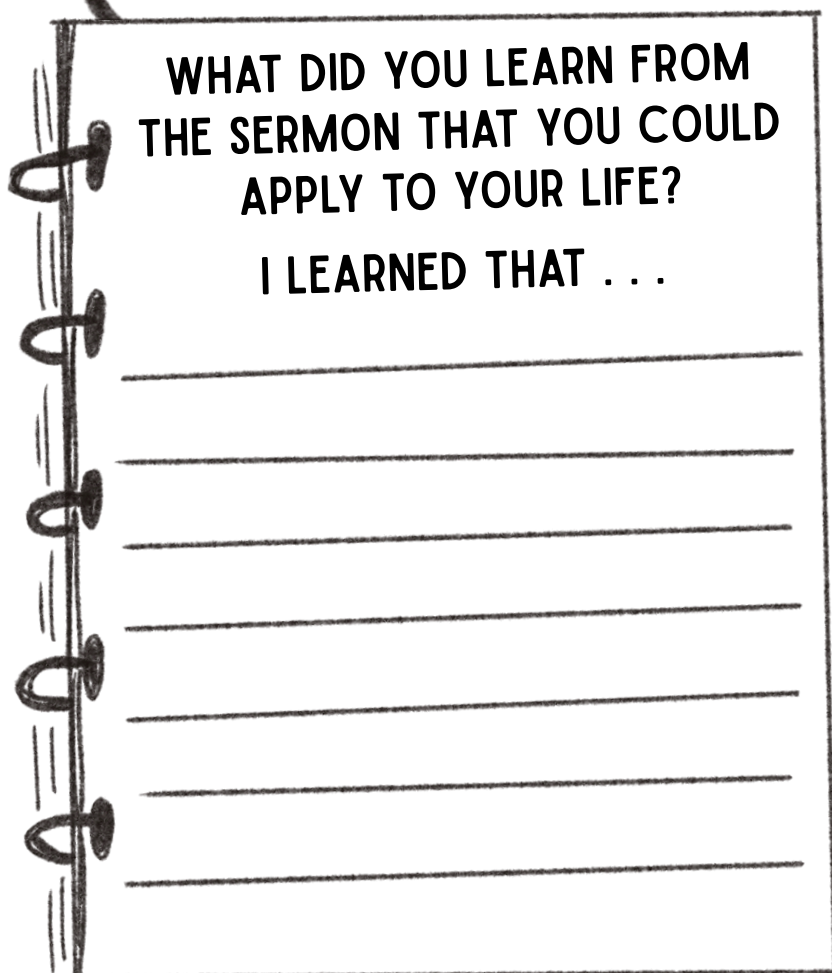 WHAT DID YOU LEARN FROM
THE SERMON THAT YOU COULD
APPLY TO YOUR LIFE?
I LEARNED THAT . . .